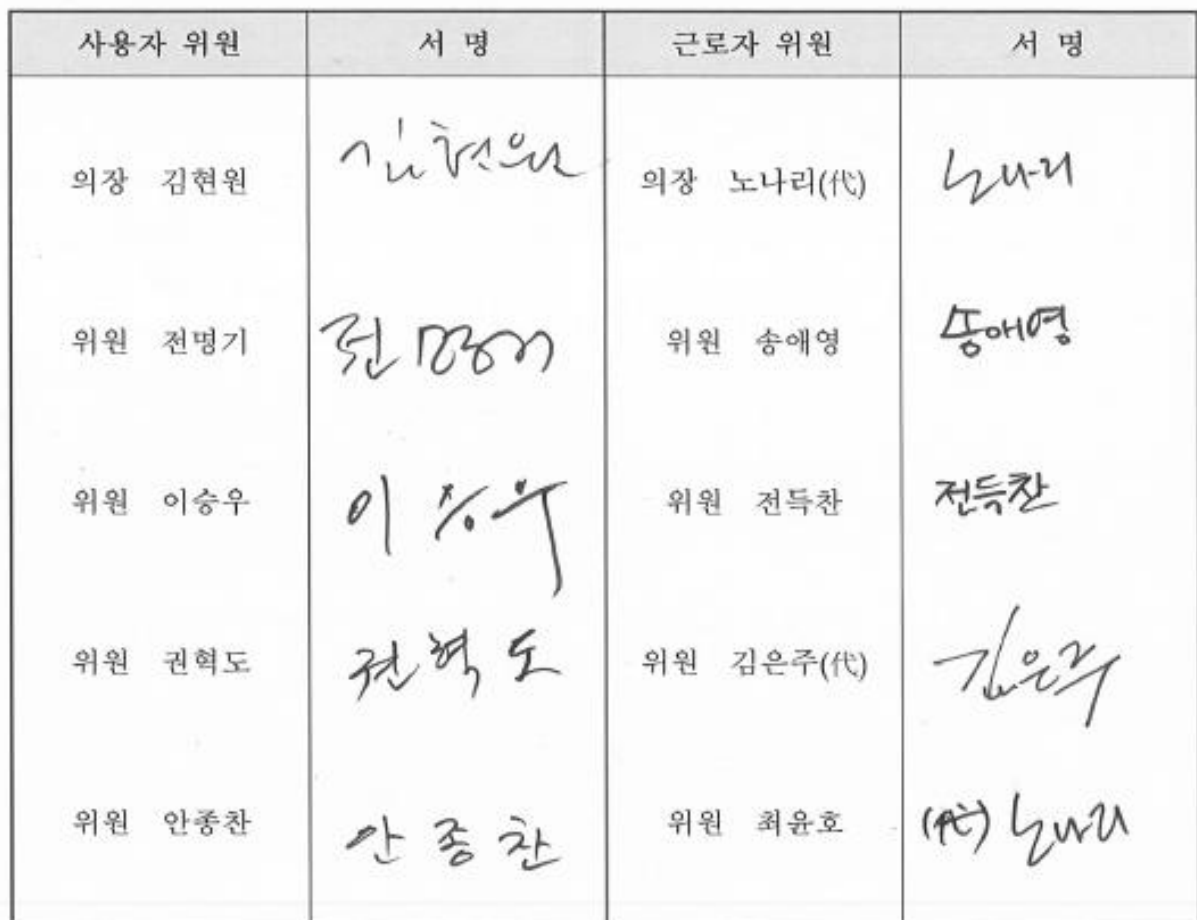 사용자 위원 서 명 근로자 위원 서 명
의장 김현원 김현원 의장 노나리(代) 노나리
위원 전명기 전명기 위원 송애영 송애영
위원 이승우 이승우 위원 전득찬 전득찬
위원 권혁도 권혁도 위원 김은주(代) 김은주
위원 안종찬 안종찬 위원 최윤호 (代) 노나리